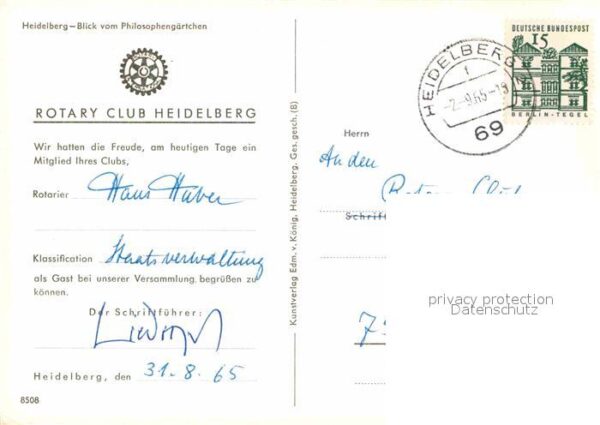 Heidelberg – Blick vom Philosophengärtchen
ROTARY CLUB HEIDELBERG
Wir hatten die Freude, am heutigen Tage ein
Mitglied Ihres Clubs,
Rotarier Hans Huber
Klassification Staatsverwaltung
als Gast bei unserer Versammlung begrüßen zu
können.
Der Schriftführer:
Heidelberg, den 31.8.65
8508
Kunstverlag Edm. v. König, Heidelberg. Ges. gesch. (B)
DEUTSCHE BUNDESPOST
15
BERLIN-TEGEL
HEIDELBERG
1
-2.-9.65-
69
Herrn
An den
Schrift
privacy protection
Datenschutz